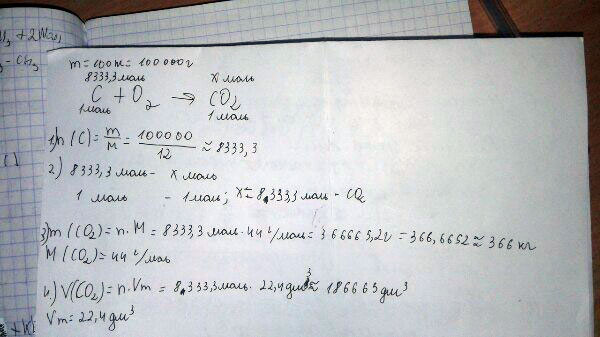 m = 100кг = 100000г
8333,3 моль
x моль
C + O₂ → CO₂
1 моль
1 моль
1) n(C) = m/M = 100000/12 ≈ 8333,3
2) 8333,3 моль - x моль
1 моль - 1 моль; x = 8333,3 моль - CO₂
3) m(CO₂) = n · M = 8333,3 моль · 44 г/моль = 366665,2г = 366,6652 ≈ 366 кг
M(CO₂) = 44 г/моль
4) V(CO₂) = n · Vm = 8333,3 моль · 22,4 дм³ ≈ 186665 дм³
Vm = 22,4 дм³